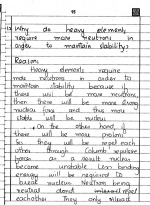 Why do heavy elements
require more neutrons in
order to maintain stability?
Reason:
Heavy elements require
more neutrons in order to
maintain stability because if
there will be more neutrons,
then there will be more strong
nuclear force and this more
stable will be nucleus.
On the other hand, if
there will be more proton
So they will be repel each
other through Columb repulsive
force as a result nucleus
become unstable. Less binding
energy will be required to
break nucleus. Neutron being
neutral donot repel
eachother They only